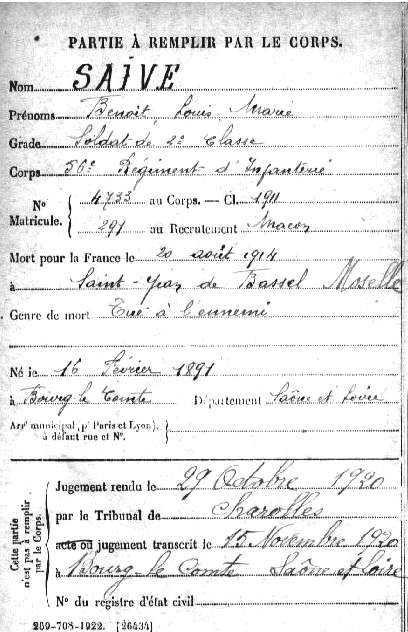 PARTIE À REMPLIR PAR LE CORPS.
Nom SAIVE
Prénoms Benoit Louis Marie
Grade Soldat de 2e Classe
Corps 56e Régiment d'Infanterie
N° Matricule. 4733 au Corps. — Cl. 1911
291 au Recrutement Macon
Mort pour la France le 20 août 1914
à Saint-Jean de Bassel Moselle
Genre de mort Tué à l'ennemi
Né le 16 Février 1891
à Bourg le Comte Département Saône et Loire
Arrt municipal (pr Paris et Lyon), à défaut rue et N°.
Cette partie n'est pas à remplir par le Corps.
Jugement rendu le 29 Octobre 1920
par le Tribunal de Charolles
acte ou jugement transcrit le 15 Novembre 1920
à Bourg-le Comte Saône et Loire
N° du registre d'état civil
269-708-1922. [26434]